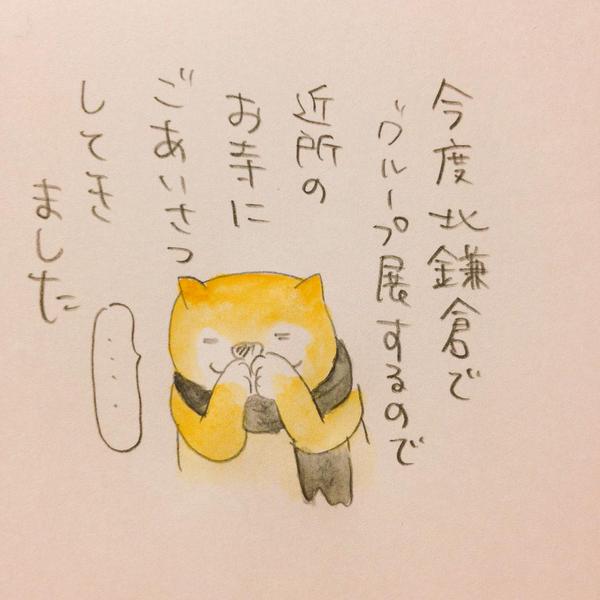 今度北鎌倉で
グループ展するので
近所の
お寺に
ごあいさつ
してき
ました
.....